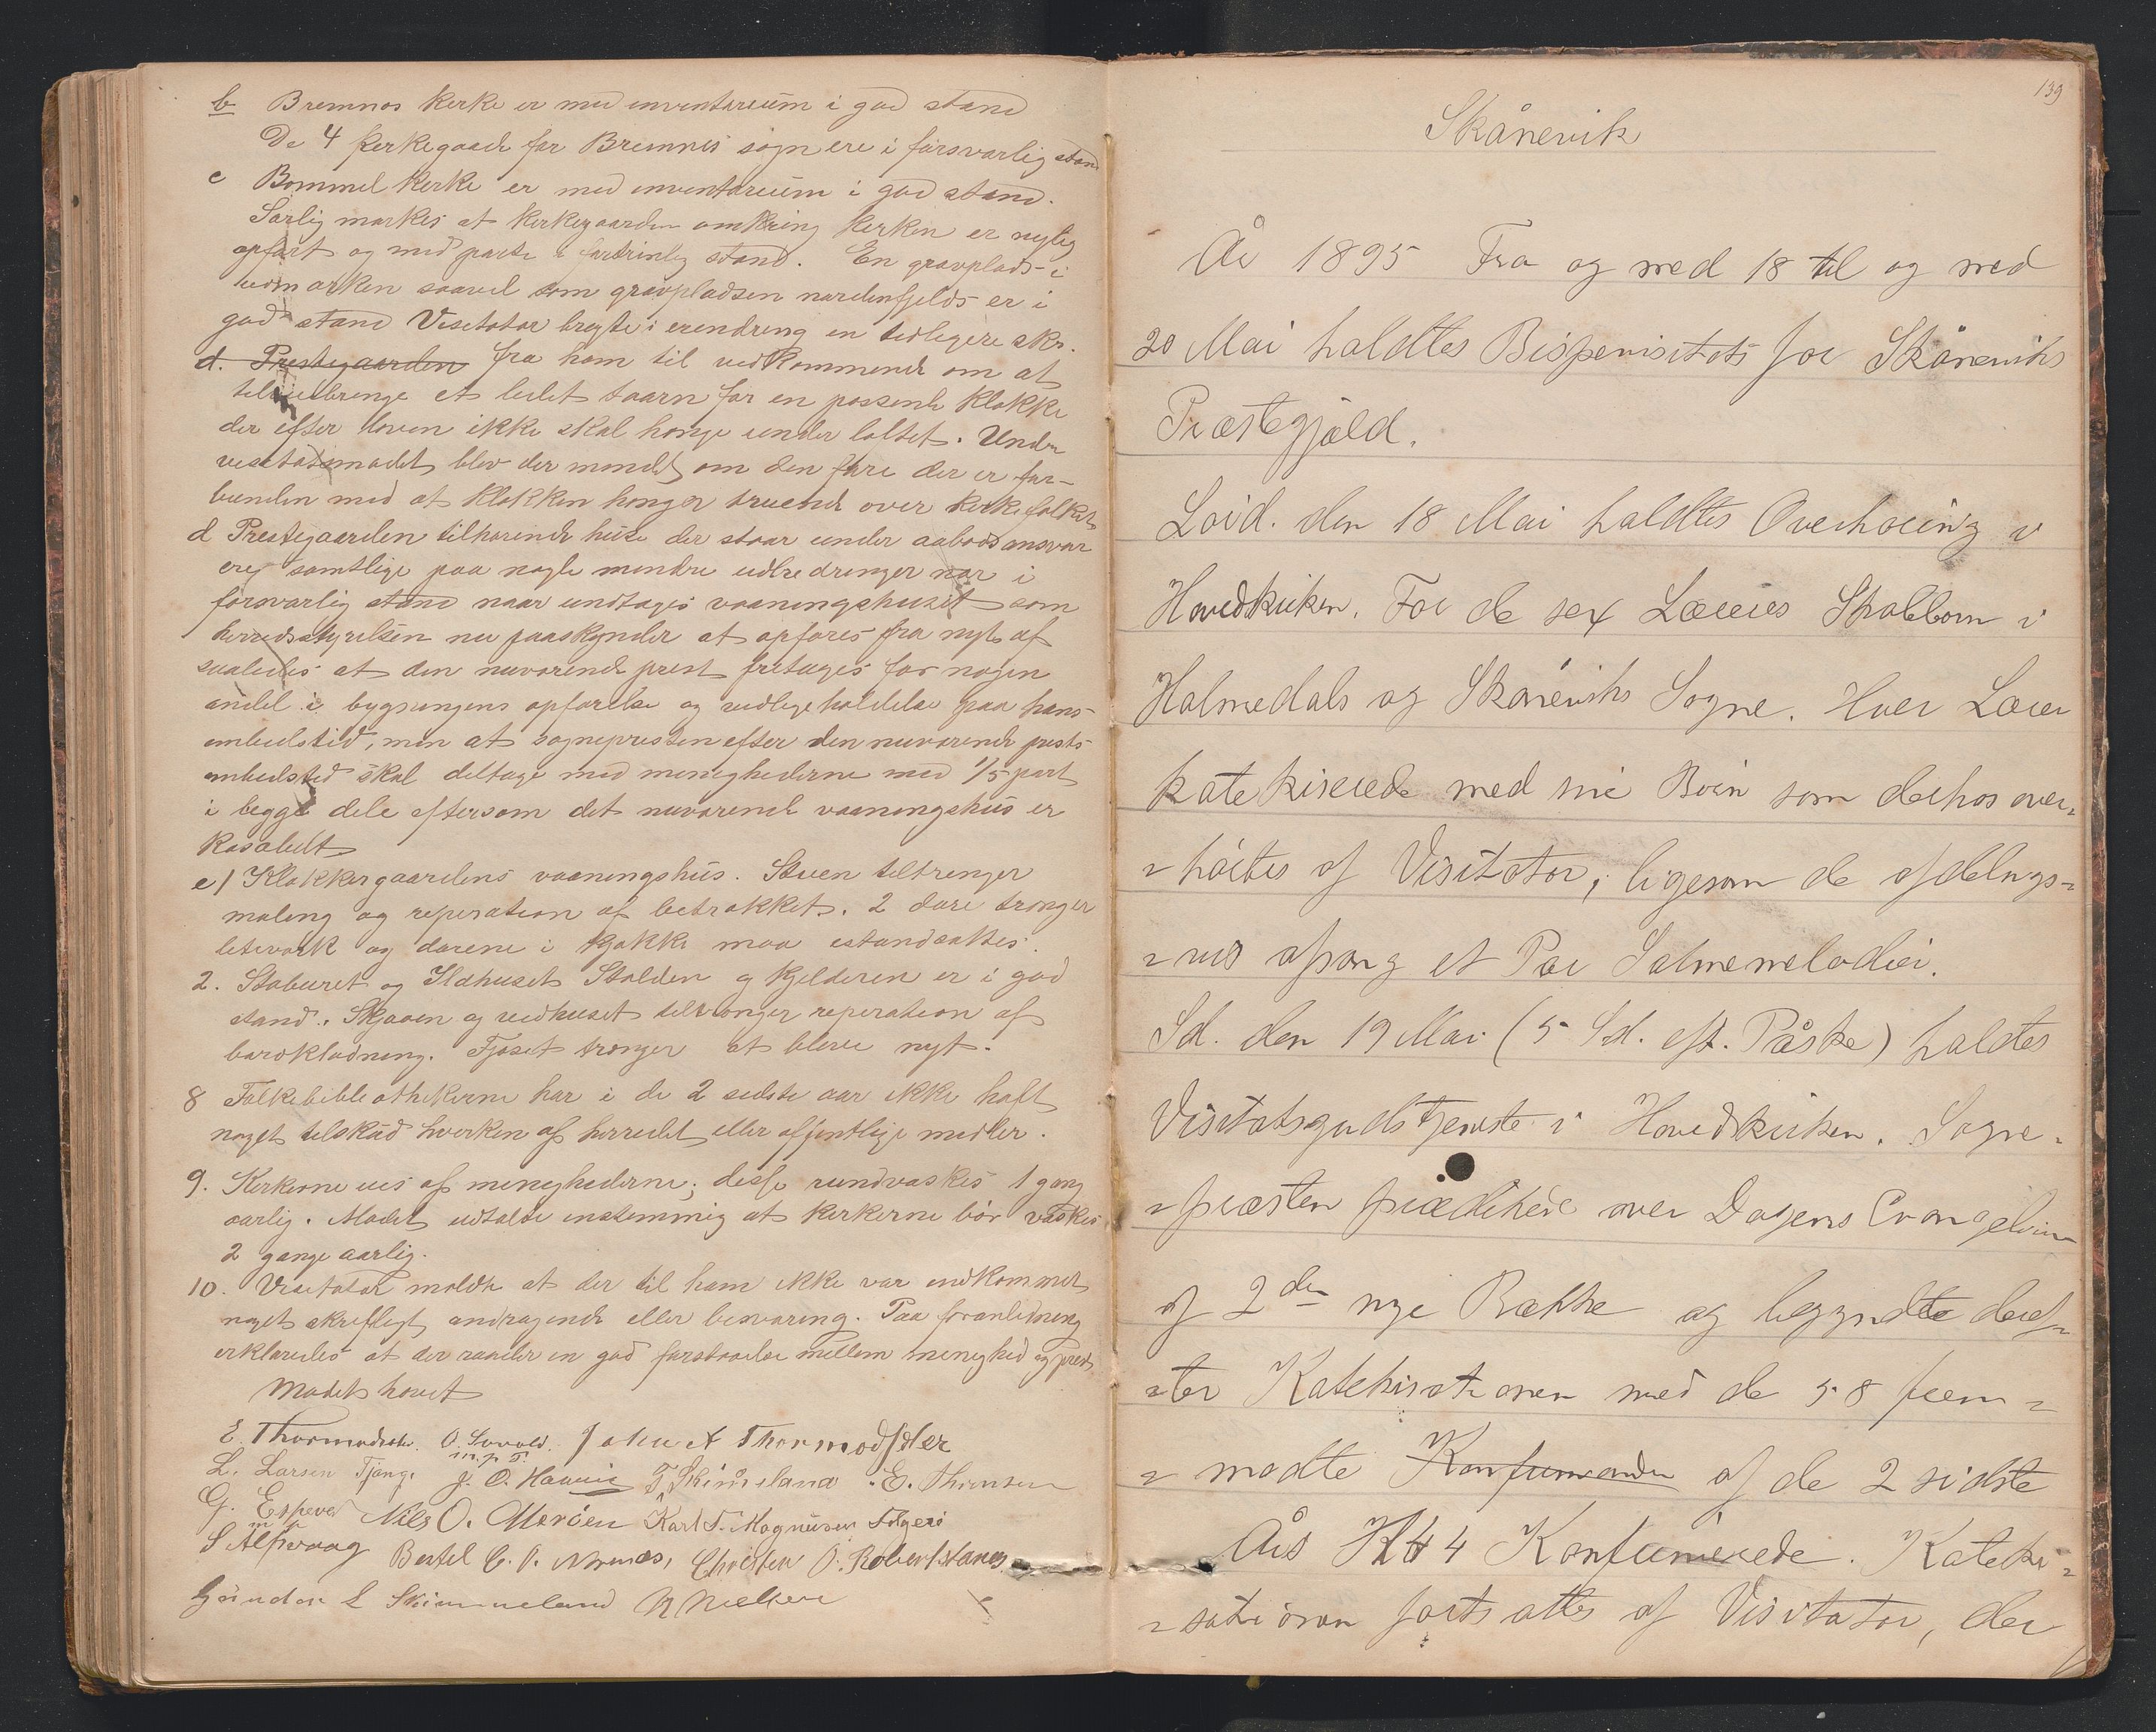 b Bremnes kerke er med inventarium i god stand
De 4 kerkegaarde for Bremnes sogn ere i forsvarlig stand
c Bømmel kerke er med inventarium i god stand.
Særlig mærkes at kerkegaarden omkring kerken er nylig
opført og med porte i fortrinlig stand. En gravplads i
udmarken saavel som gravpladsen nordenfjelds er i
god stand Visitator bragte i erendring en tidligere skr.
d. Prestegaarden fra ham til vedkommende om at
tilveiebringe et lidet taarn for en passende klokke
der efter loven ikke skal hænge under loftet. Under
visitatsmødet blev der mindet om den fare der er for-
bunden med at klokken hænger truende over kerkefolket
d Prestegaarden tilhørende huse der staar under aabodsansvar
ere samtlige paa nogle mindre udbedringer nær i
forsvarlig stand naar undtages vaaningshuset som
herredsstyrelsen nu paaskynder at opføres fra nyt af
saaledes at den nuværende prest fritages for nogen
andel i bygningens opførelse og vedligeholdelse paa hans
embedstid, men at sognepresten efter den nuværende prests
embedstid skal deltage med menighederne med 1/5 part
i begge dele eftersom det nuværende vaaningshus er
kasabelt
e) Klokkergaardens vaaningshus. Stuen tiltrenger
maling og reperation af betrækket. 2 døre trænger
listværk og dørene i kjøkke maa istandsættes.
2. Staburet og Ildhuset Stalden og kjelderen er i god
stand. Skjaaen og vedhuset tiltrænger reperation af
bordklædning. Fjøset trænger at blive nyt.
8 Folkebibliothekerne har i de 2 sidste aar ikke haft
noget tilskud hverken af herredet eller offentlige midler.
9. Kerkerne eies af menighederne; disse rundvaskes 1 gang
aarlig. Mødet udtalte enstemmig at kerkerne bør vaskes
2 gange aarlig.
10. Visitator meldte at der til ham ikke var indkommet
noget skriftligt andragende eller besværing. Paa foranledning
erklæredes at der raader en god forstaaelse mellem menighed og prest.
Mødet hævet
E. Thormodsæter. O. Sørvold. Johu A Thormodsæter
m.p.
L. Larsen Tjong. J. O. Havnig T. Skimeland E. Thomsen
G. Espevær Nils O. Meröen Karl T. Magnusen Folgerö
m p
S Alfsvaag Bertel C. O. Christen O. Robertstanes
L Skimmeland N Nielsen
139
Skånevik
År 1895 Fra og med 18 til og med
20 Mai holdtes Bispevisitats for Skåneviks
Præstegjæld.
Lørd. den 18 Mai holdtes Overhøring i
Hovedkirken. For de sex Læreres Skolebørn i
Holmedals og Skåneviks Sogne. Hver Lærer
katekiserede med sine Børn som derhos over-
-hørtes af Visitator, ligesom de afdelings-
-vis afsang et Par Salmemelodier.
Sd. den 19 Mai (5 Sd. eft. Påske) holdtes
Visitatsgudstjeneste i Hovedkirken. Sogne-
-præsten prædikede over Dagens Evangelium
af 2den nye Række og begyndte deref-
-ter Katekisationen med de 58 frem-
-mødte Konfirmander af de 2 sidste
Års K 4 Konfirmerede. Kateki-
-sationen fortsattes af Visitator, der